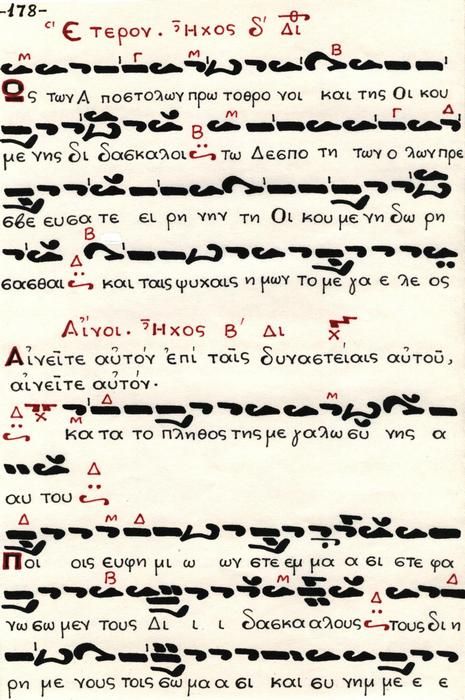 -178-
Ἕτερον. Ἦχος δ΄ Δι
Ως των Α ποστολων πρω τοθρο νοι και της Οι κου
με νης δι δασκαλοι τω Δεσπο τη των ο λων πρε
σβε ευσα τε ει ρη νην τη Οι κου με νη δω ρη
σασθαι και ταις ψυχαις η μων το με γα ε λε ος
Αἶνοι. Ἦχος Β΄ Δι
Αἰνεῖτε αὐτόν ἐπί ταῖς δυναστείαις αὐτοῦ,
αἰνεῖτε αὐτόν·
κα τα το πληθος της με γαλω συ νης α
αυ του
Ποι οις ευφη μι ω ων στε εμ μα α σι στε φα
νω σω μεν τους Δι ι ι δασκα αλους τους δι η
ρη με νους τοις σω μα α σι και συ νημ με ε ε